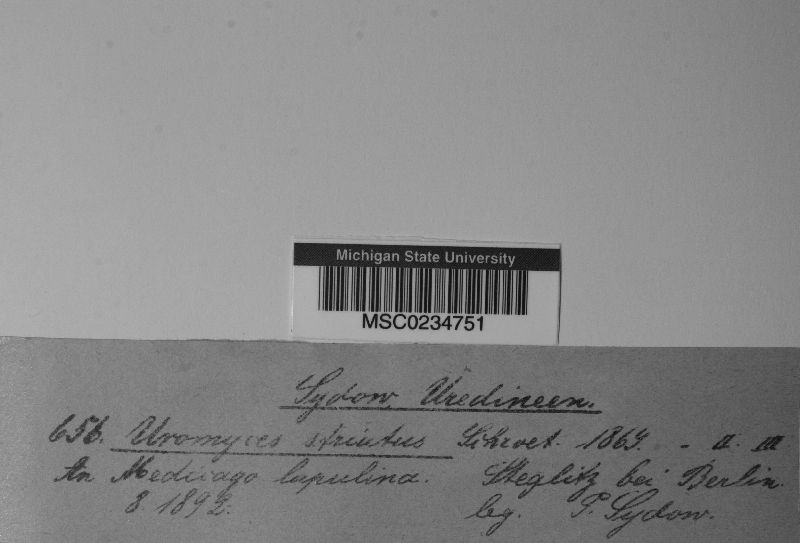 Michigan State University
MSC0234751
Sydow, Uredineen.
656. Uromyces striatus Schroet. 1869. - II. III
An Medicago lupulina. Steglitz bei Berlin.
8. 1892. leg. P. Sydow.